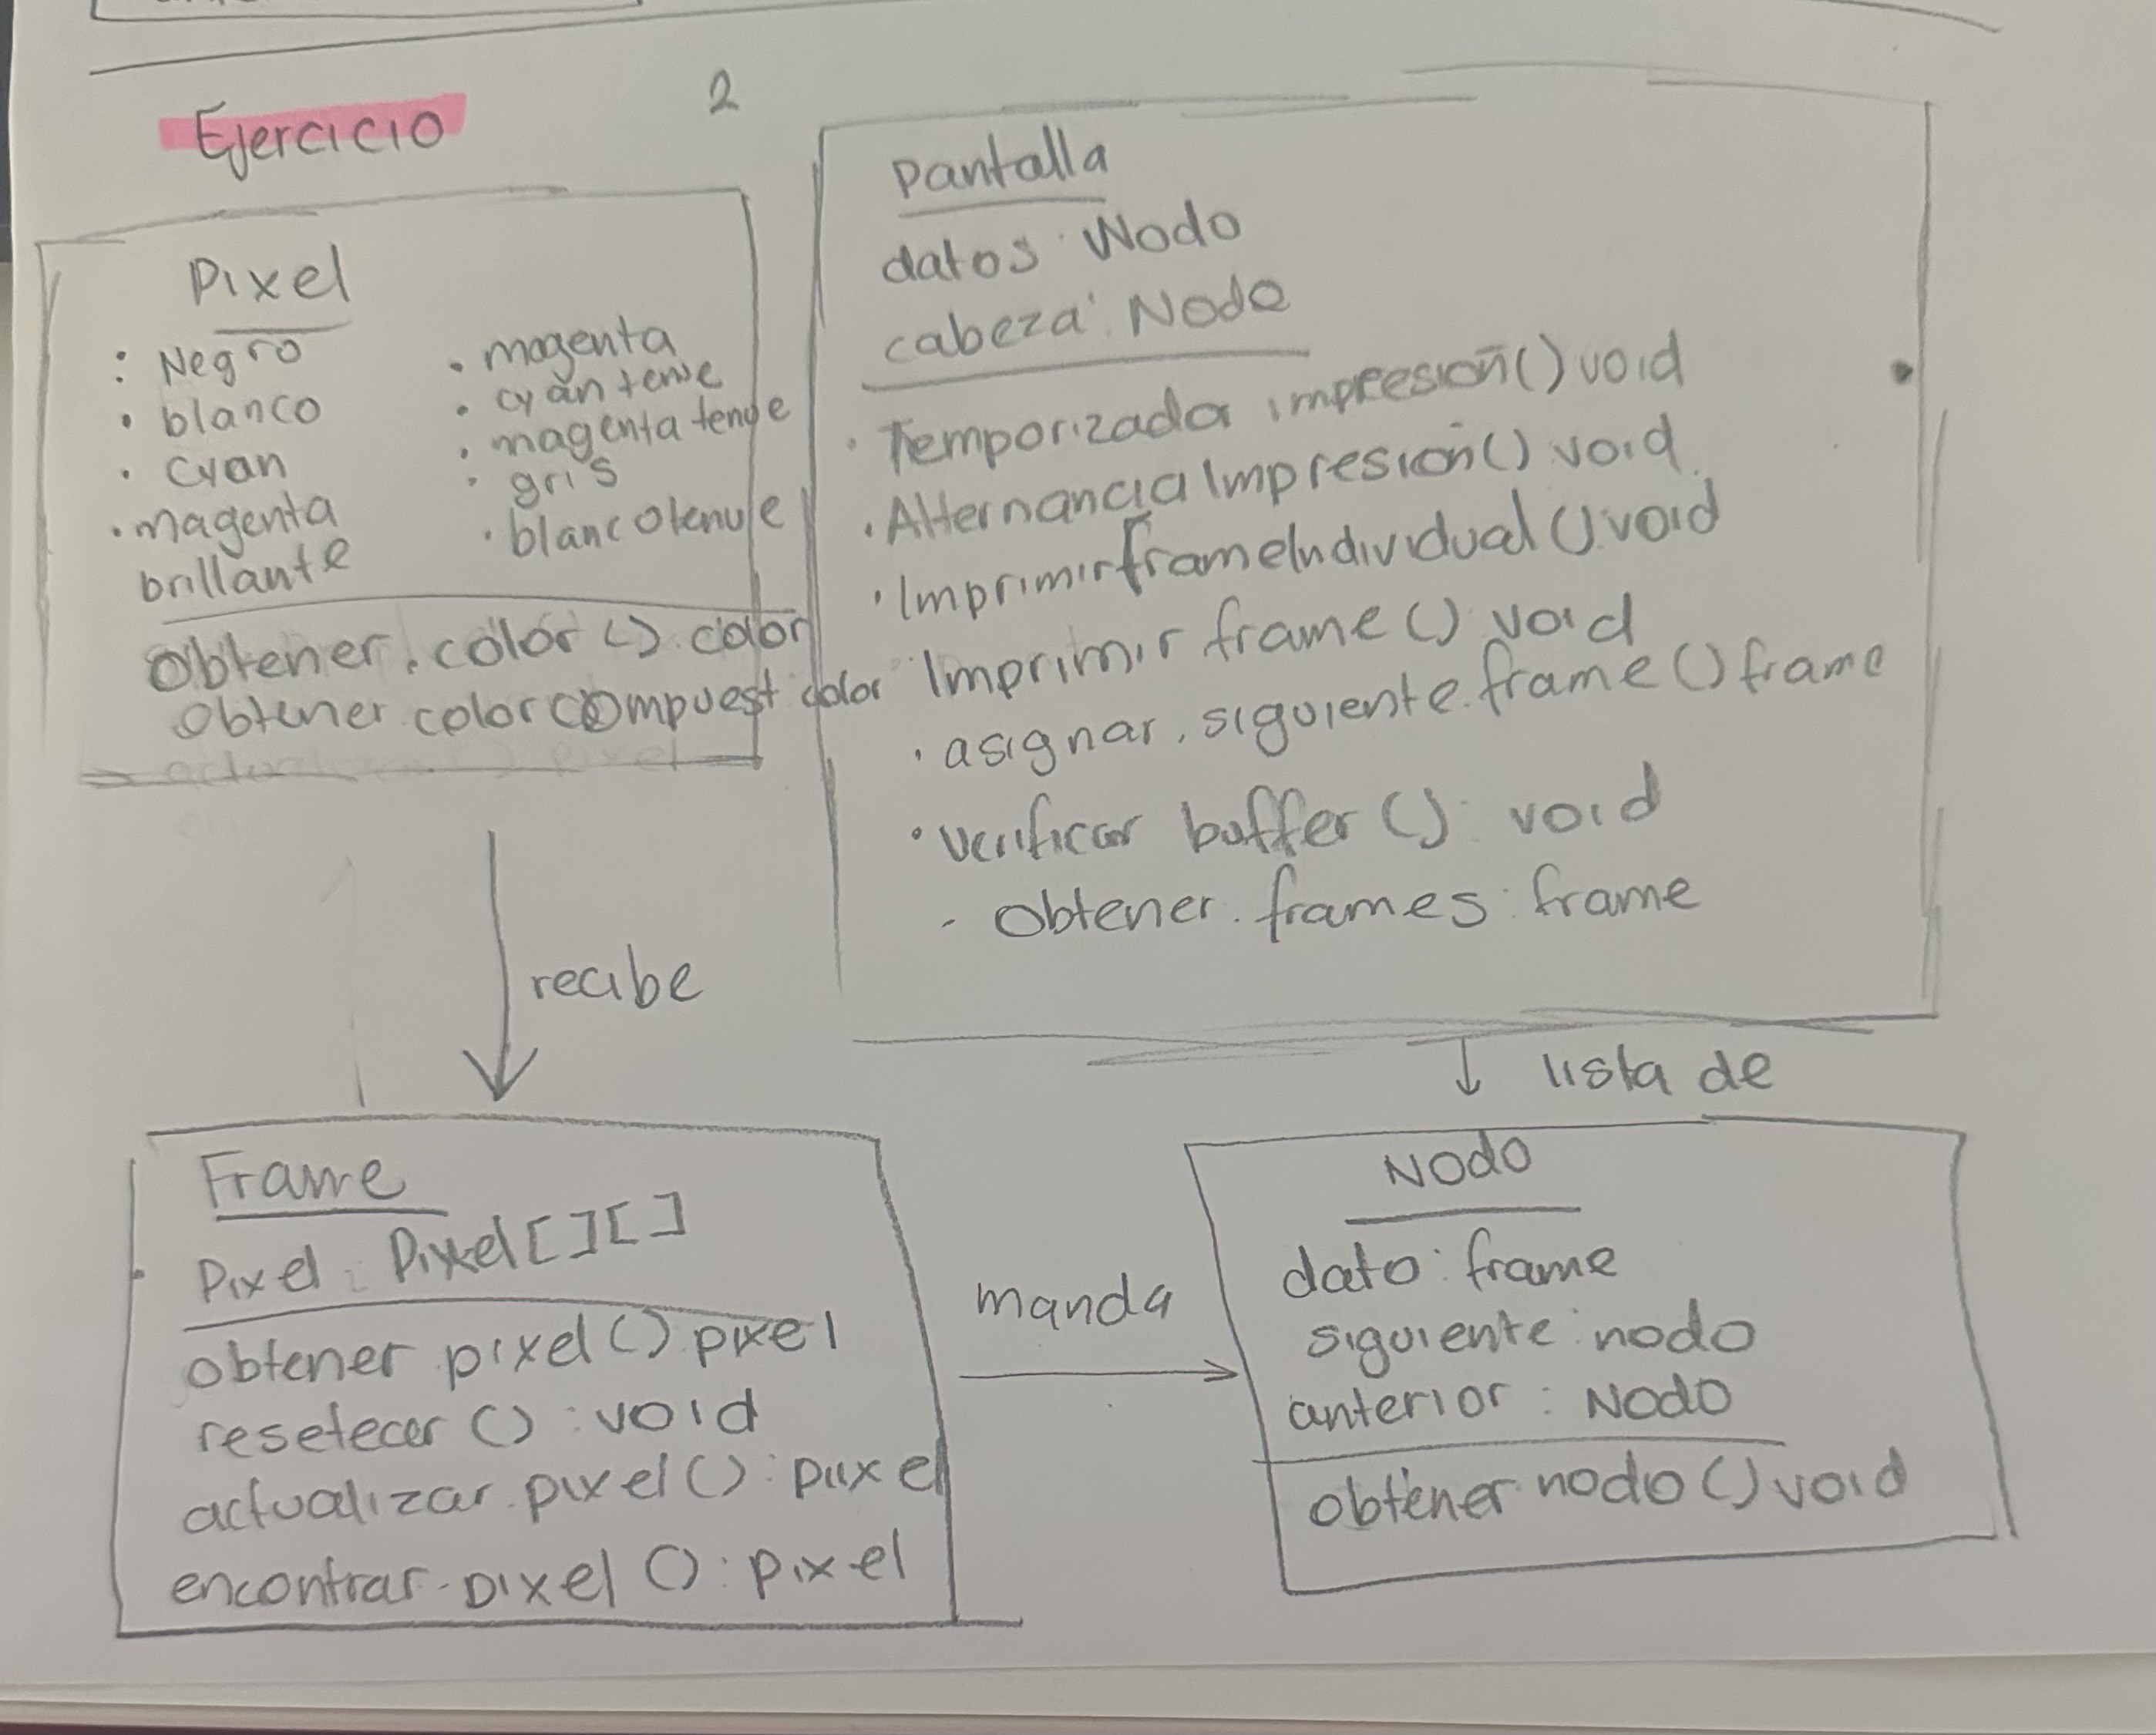 Ejercicio 2
Pixel
: Negro
• blanco
• Cyan
• magenta
brillante
• magenta
• cyan tenue
• magenta tenue
• gris
• blancotenue
Obtener.color().color
Obtener color compuest color
pantalla
datos: Nodo
cabeza: Nodo
• Temporizador impresion() void
• Alternancia Impresion() void
• ImprimirframeIndividual(): void
Imprimir frame(): void
• asignar.siguiente.frame() frame
• verificar buffer(): void
- Obtener.frames: frame
recibe
lista de
Frame
Pixel: Pixel[][]
obtener pixel() pixel
resetear(): void
actualizar.pixel(): pixel
encontrar-pixel(): pixel
manda
Nodo
dato: frame
siguiente: nodo
anterior: Nodo
obtener nodo() void